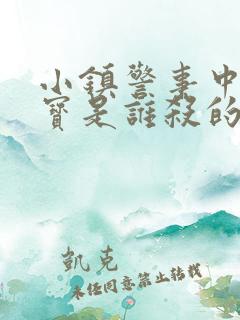 小鎮警事中
寶是誰殺的
凱克
未經同意禁止轉載